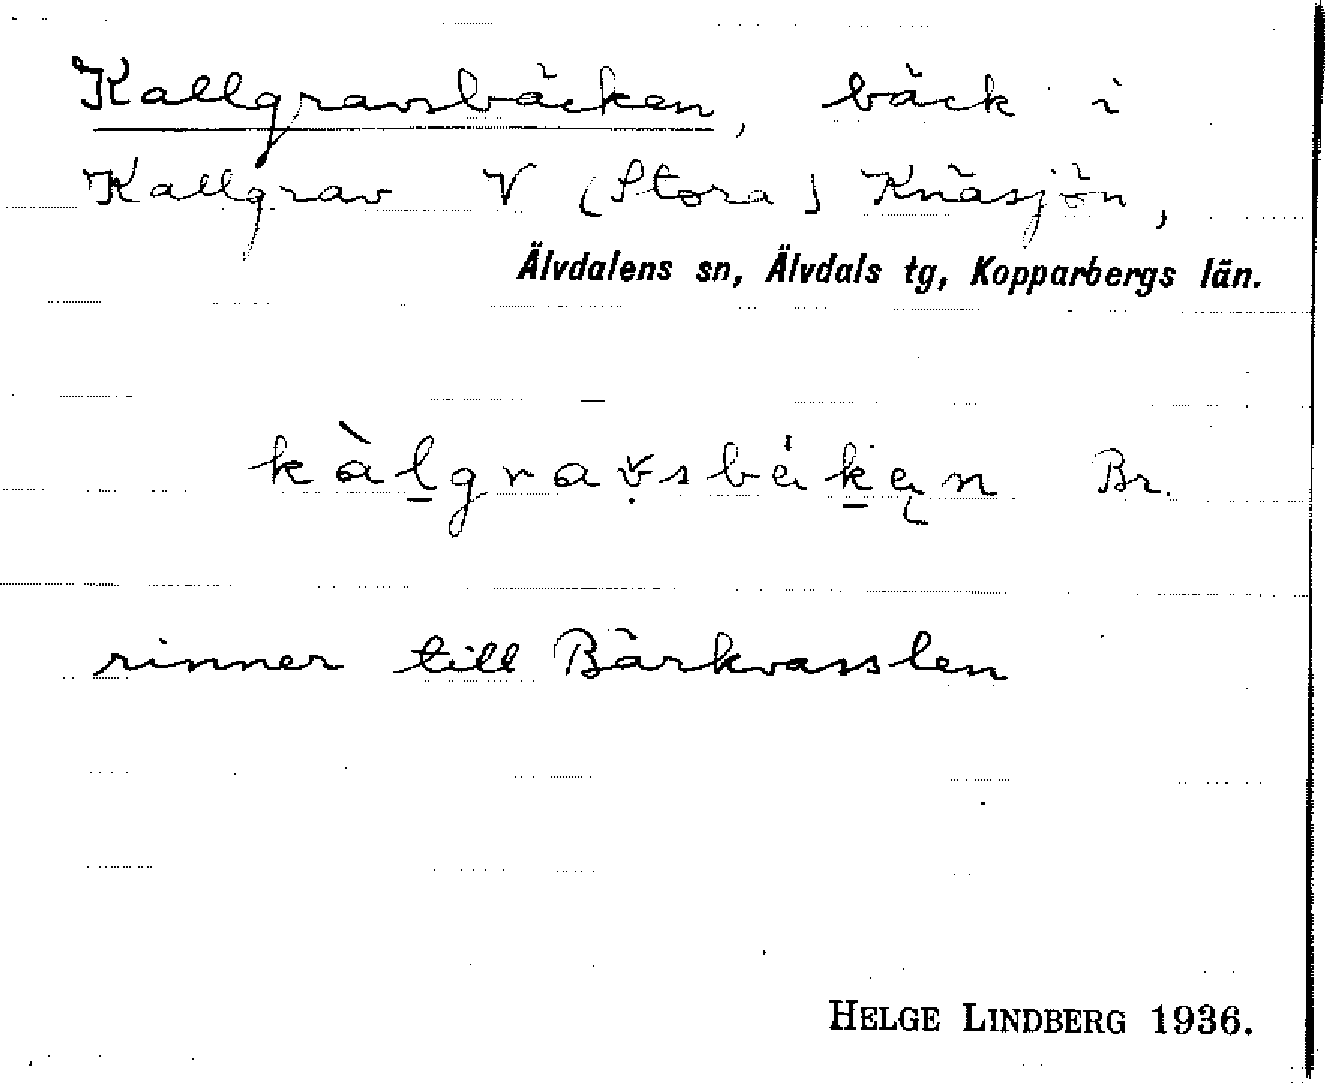 Kallgravsbäcken, bäck i
Kallgrav V (Stora) Knäsjön,
Älvdalens sn, Älvdals tg, Kopparbergs län.
Br.
rinner till Bärkvasslen
HELGE LINDBERG 1936.